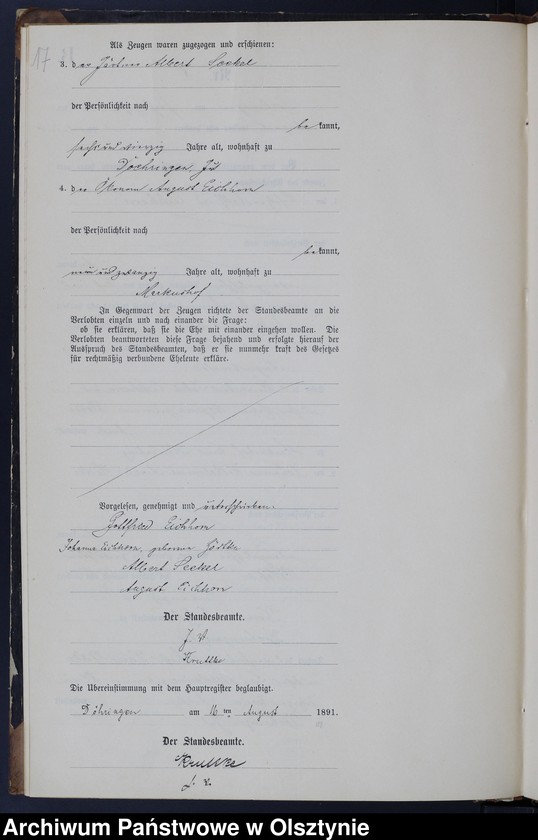 17
Als Zeugen waren zugezogen und erschienen:
3. der Gärtner Albert Seckel
der Persönlichkeit nach
be kannt,
sechs und vierzig Jahre alt, wohnhaft zu
Döhringen
4. der Ökonom August Eichhorn
der Persönlichkeit nach
be kannt,
neun und zwanzig Jahre alt, wohnhaft zu
Markushof
In Gegenwart der Zeugen richtete der Standesbeamte an die
Verlobten einzeln und nach einander die Frage:
ob sie erklären, daß sie die Ehe mit einander eingehen wollen. Die
Verlobten beantworteten diese Frage bejahend und erfolgte hierauf der
Ausspruch des Standesbeamten, daß er sie nunmehr kraft des Gesetzes
für rechtmäßig verbundene Eheleute erkläre.
Vorgelesen, genehmigt und unterschrieben.
Gottfried Eichhorn
Johanna Eichhorn, geborene
Albert Seckel
August Eichhorn
Der Standesbeamte.
J. V.
Die Übereinstimmung mit dem Hauptregister beglaubigt.
Döhringen am 16 ten August 1891.
Der Standesbeamte.
J. V.
Archiwum Państwowe w Olsztynie